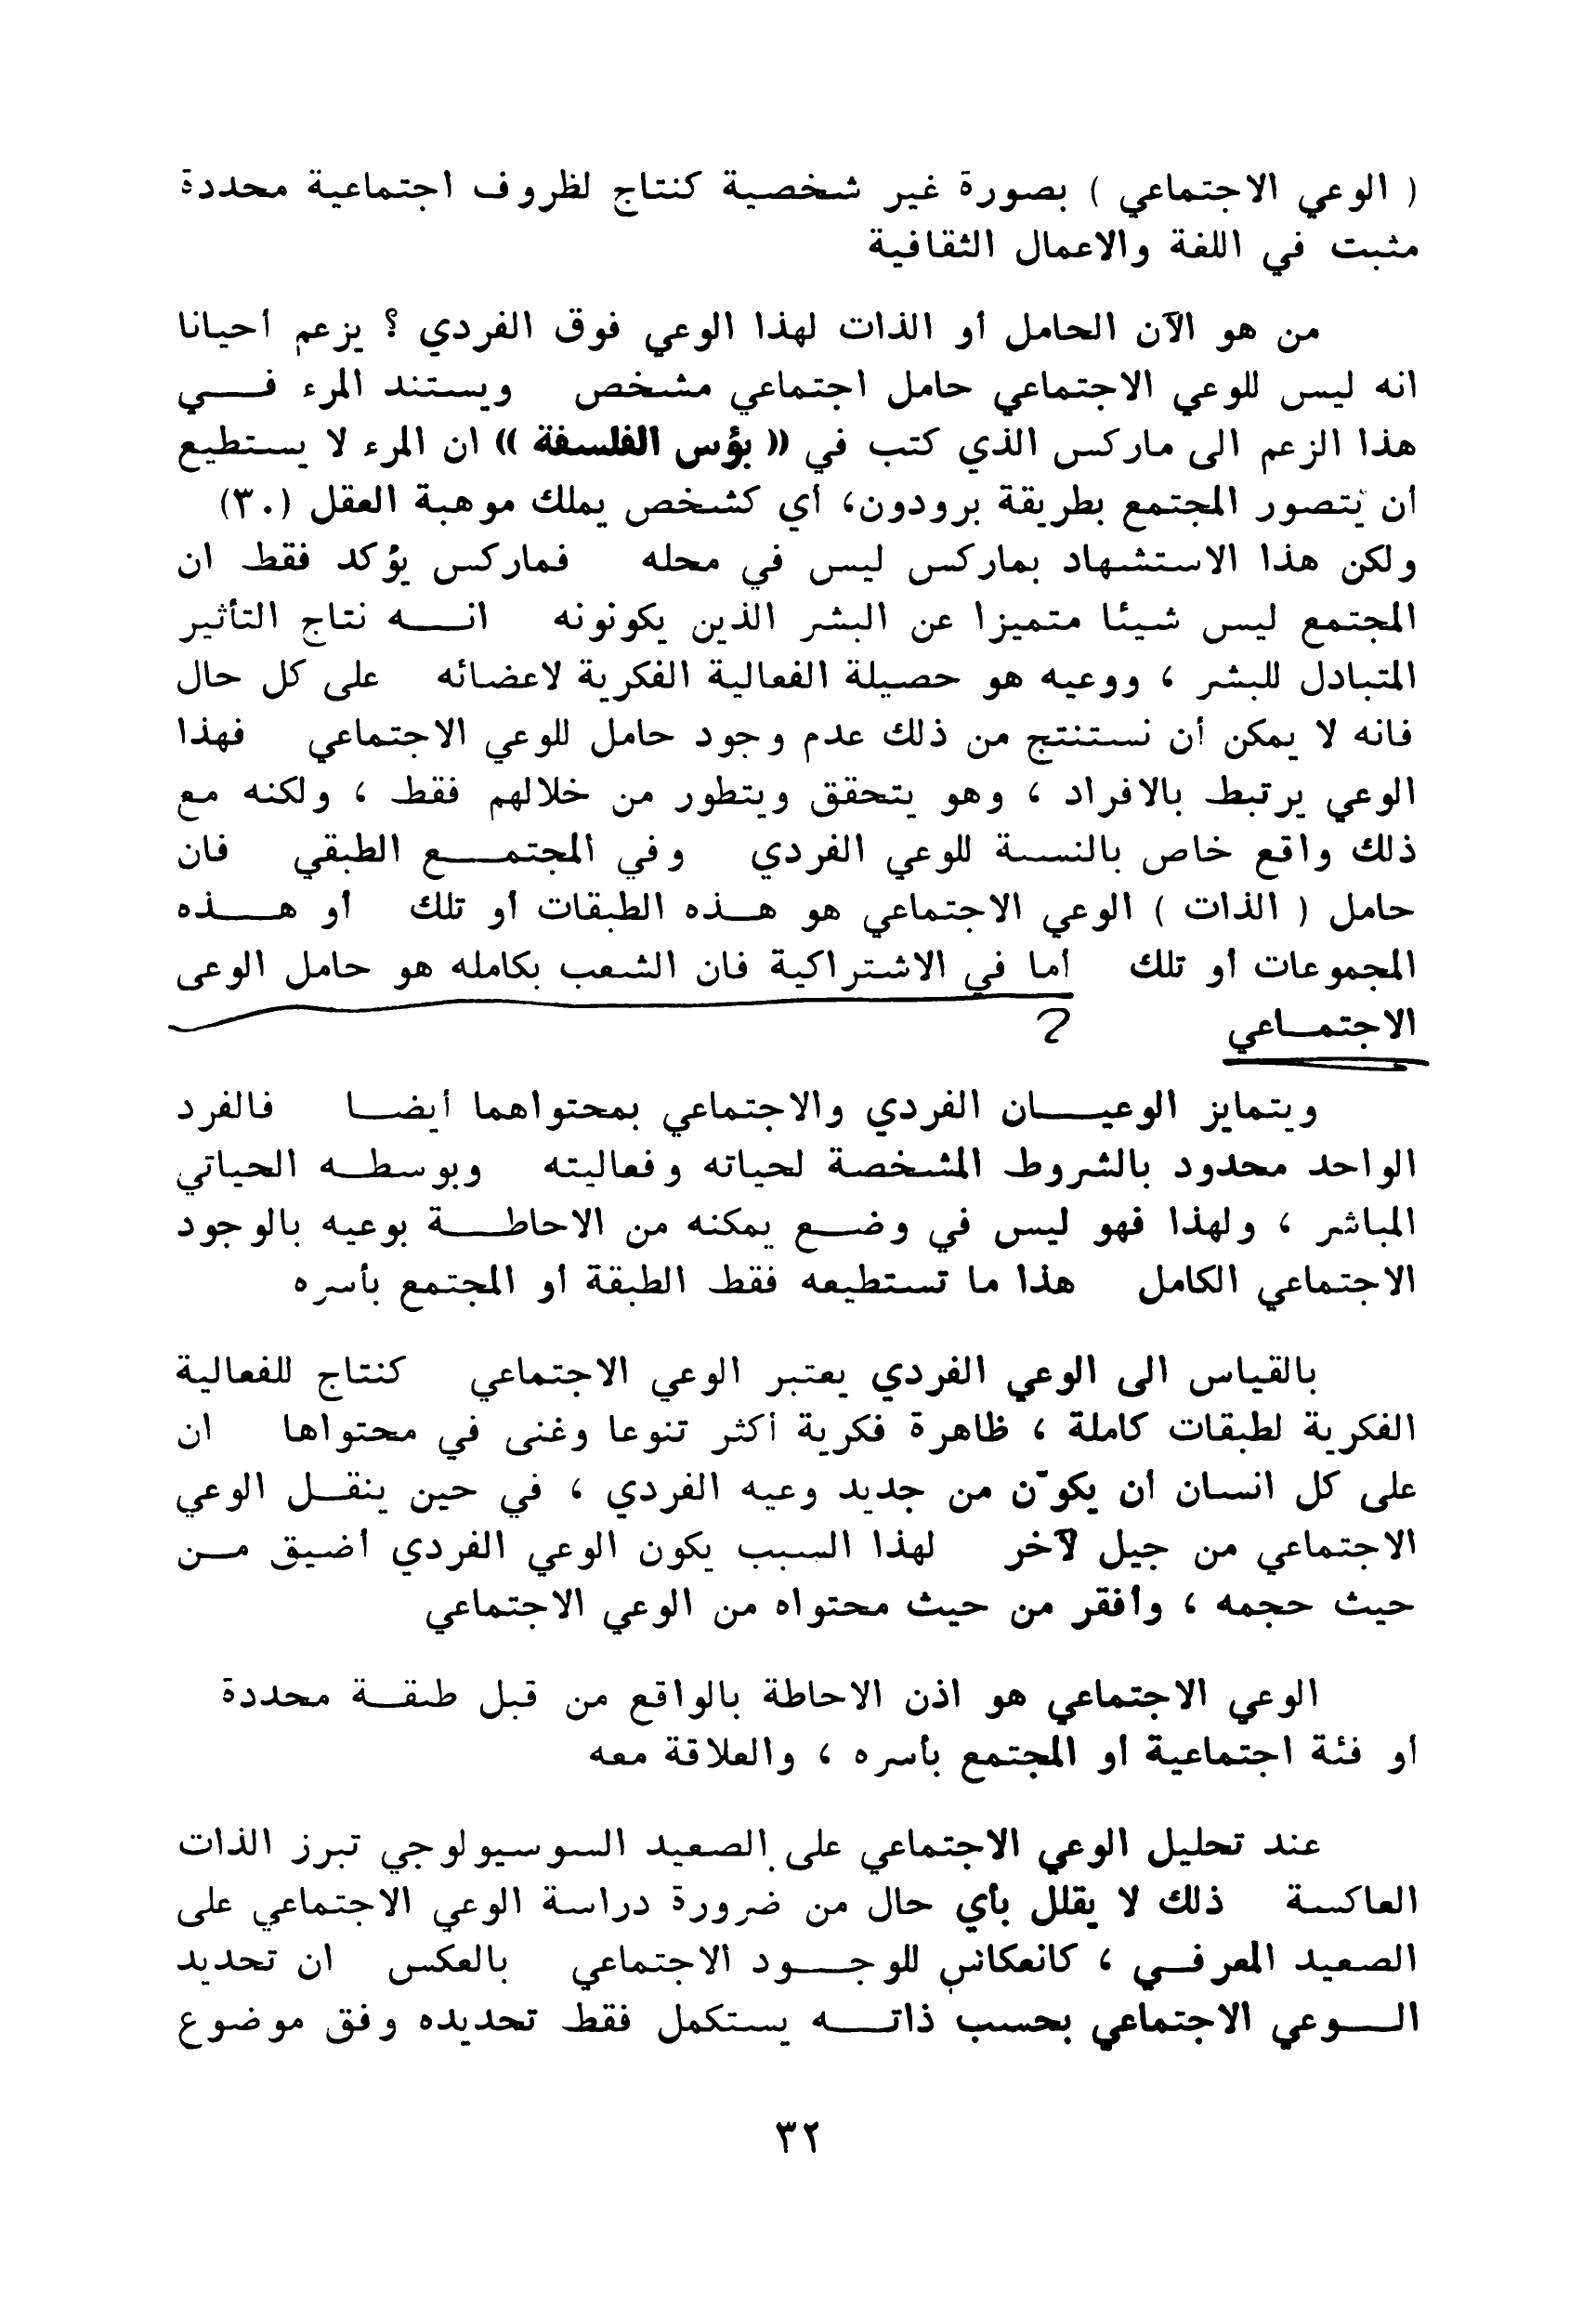 ( الوعي الاجتماعي ) بصورة غير شخصية كنتاج لظروف اجتماعية محددة
مثبت في اللغة والاعمال الثقافية
من هو الآن الحامل أو الذات لهذا الوعي فوق الفردي ؟ يزعم أحيانا
انه ليس للوعي الاجتماعي حامل اجتماعي مشخص ويستند المرء فــي
هذا الزعم الى ماركس الذي كتب في « بؤس الفلسفة » ان المرء لا يستطيع
أن يتصور المجتمع بطريقة برودون، أي كشخص يملك موهبة العقل (٣٠)
ولكن هذا الاستشهاد بماركس ليس في محله فماركس يؤكد فقط ان
المجتمع ليس شيئا متميزا عن البشر الذين يكونونه انــه نتاج التأثير
المتبادل للبشر ، ووعيه هو حصيلة الفعالية الفكرية لاعضائه على كل حال
فانه لا يمكن أن نستنتج من ذلك عدم وجود حامل للوعي الاجتماعي فهذا
الوعي يرتبط بالافراد ، وهو يتحقق ويتطور من خلالهم فقط ، ولكنه مع
ذلك واقع خاص بالنسبة للوعي الفردي وفي المجتمــع الطبقي فان
حامل ( الذات ) الوعي الاجتماعي هو هـذه الطبقات أو تلك أو هــذه
المجموعات أو تلك أما في الاشتراكية فان الشعب بكامله هو حامل الوعى
الاجتمـاعي ?
ويتمايز الوعيــان الفردي والاجتماعي بمحتواهما أيضـا فالفرد
الواحد محدود بالشروط المشخصة لحياته وفعاليته وبوسطـه الحياتي
المباشر ، ولهذا فهو ليس في وضـع يمكنه من الاحاطــة بوعيه بالوجود
الاجتماعي الكامل هذا ما تستطيعه فقط الطبقة أو المجتمع بأسره
بالقياس الى الوعي الفردي يعتبر الوعي الاجتماعي كنتاج للفعالية
الفكرية لطبقات كاملة ، ظاهرة فكرية أكثر تنوعا وغنى في محتواها ان
على كل انسان أن يكوّن من جديد وعيه الفردي ، في حين ينقـل الوعي
الاجتماعي من جيل لآخر لهذا السبب يكون الوعي الفردي أضيق مـن
حيث حجمه ، وأفقر من حيث محتواه من الوعي الاجتماعي
الوعي الاجتماعي هو اذن الاحاطة بالواقع من قبل طبقـة محددة
أو فئة اجتماعية أو المجتمع بأسره ، والعلاقة معه
عند تحليل الوعي الاجتماعي على الصعيد السوسيولوجي تبرز الذات
العاكسة ذلك لا يقلل بأي حال من ضرورة دراسة الوعي الاجتماعي على
الصعيد المعرفـي ، كانعكاس للوجــود الاجتماعي بالعكس ان تحديد
الــوعي الاجتماعي بحسب ذاتــه يستكمل فقط تحديده وفق موضوع
٣٢